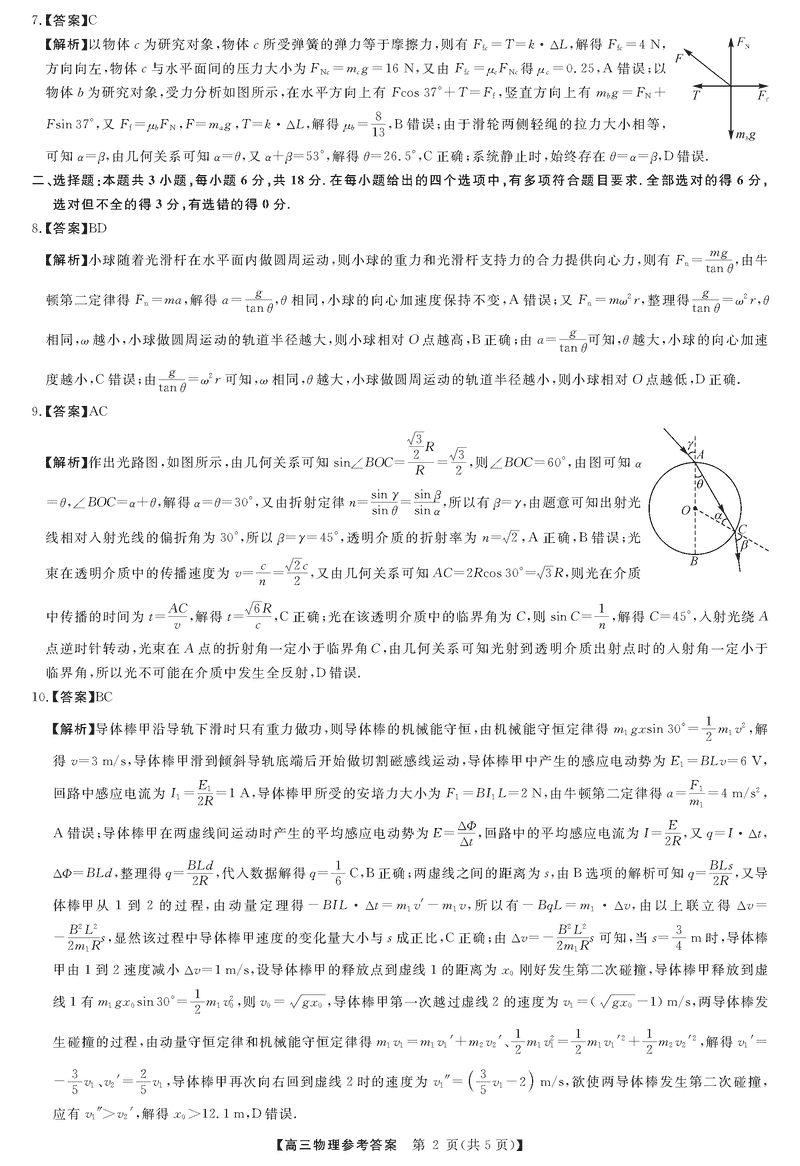 7.【答案】C
【解析】以物体 c 为研究对象,物体 c 所受弹簧的弹力等于摩擦力,则有 Ffc=T=k·ΔL,解得 Ffc=4 N,
方向向左,物体 c 与水平面间的压力大小为 FNc=mcg=16 N,又由 Ffc=μcFNc得 μc=0.25,A 错误;以
物体 b 为研究对象,受力分析如图所示,在水平方向上有 Fcos 37°+T=Ff,竖直方向上有 mbg=FN+
Fsin 37°,又 Ff=μbFN,F=mag,T=k·ΔL,解得 μb=8/13,B 错误;由于滑轮两侧轻绳的拉力大小相等,
可知 α=β,由几何关系可知 α=θ,又 α+β=53°,解得 θ=26.5°,C 正确;系统静止时,始终存在 θ=α=β,D 错误.
F
FN
T
Ff
mbg
二、选择题:本题共 3 小题,每小题 6 分,共 18 分.在每小题给出的四个选项中,有多项符合题目要求.全部选对的得 6 分,
选对但不全的得 3 分,有选错的得 0 分.
8.【答案】BD
【解析】小球随着光滑杆在水平面内做圆周运动,则小球的重力和光滑杆支持力的合力提供向心力,则有 Fn=mg/tan θ,由牛
顿第二定律得 Fn=ma,解得 a=g/tan θ,θ 相同,小球的向心加速度保持不变,A 错误;又 Fn=mω²r,整理得g/tan θ=ω²r,θ
相同,ω 越小,小球做圆周运动的轨道半径越大,则小球相对 O 点越高,B 正确;由 a=g/tan θ可知,θ 越大,小球的向心加速
度越小,C 错误;由g/tan θ=ω²r 可知,ω 相同,θ 越大,小球做圆周运动的轨道半径越小,则小球相对 O 点越低,D 正确.
9.【答案】AC
【解析】作出光路图,如图所示,由几何关系可知 sin∠BOC=(√3/2)R/R=√3/2,则∠BOC=60°,由图可知 α
=θ,∠BOC=α+θ,解得 α=θ=30°,又由折射定律 n=sin γ/sin θ=sin β/sin α,所以有 β=γ,由题意可知出射光
线相对入射光线的偏折角为 30°,所以 β=γ=45°,透明介质的折射率为 n=√2,A 正确,B 错误;光
束在透明介质中的传播速度为 v=c/n=√2c/2,又由几何关系可知 AC=2Rcos 30°=√3R,则光在介质
中传播的时间为 t=AC/v,解得 t=√6R/c,C 正确;光在该透明介质中的临界角为 C,则 sin C=1/n,解得 C=45°,入射光绕 A
点逆时针转动,光束在 A 点的折射角一定小于临界角 C,由几何关系可知光射到透明介质出射点时的入射角一定小于
临界角,所以光不可能在介质中发生全反射,D 错误.
γ
A
θ
O
α
C
β
B
10.【答案】BC
【解析】导体棒甲沿导轨下滑时只有重力做功,则导体棒的机械能守恒,由机械能守恒定律得 m1gxsin 30°=1/2m1v²,解
得 v=3 m/s,导体棒甲滑到倾斜导轨底端后开始做切割磁感线运动,导体棒甲中产生的感应电动势为 E1=BLv=6 V,
回路中感应电流为 I1=E1/2R=1 A,导体棒甲所受的安培力大小为 F1=BI1L=2 N,由牛顿第二定律得 a=F1/m1=4 m/s²,
A 错误;导体棒甲在两虚线间运动时产生的平均感应电动势为 E=ΔΦ/Δt,回路中的平均感应电流为 I=E/2R,又 q=I·Δt,
ΔΦ=BLd,整理得 q=BLd/2R,代入数据解得 q=1/6 C,B 正确;两虚线之间的距离为 s,由 B 选项的解析可知 q=BLs/2R,又导
体棒甲从 1 到 2 的过程,由动量定理得-BIL·Δt=m1v′-m1v,所以有-BqL=m1·Δv,由以上联立得 Δv=
-B²L²/2m1R s,显然该过程中导体棒甲速度的变化量大小与 s 成正比,C 正确;由 Δv=-B²L²/2m1R s 可知,当 s=3/4 m 时,导体棒
甲由 1 到 2 速度减小 Δv=1 m/s,设导体棒甲的释放点到虚线 1 的距离为 x0 刚好发生第二次碰撞,导体棒甲释放到虚
线 1 有 m1gx0sin 30°=1/2m1v0²,则 v0=√gx0,导体棒甲第一次越过虚线 2 的速度为 v1=(√gx0-1) m/s,两导体棒发
生碰撞的过程,由动量守恒定律和机械能守恒定律得 m1v1=m1v1′+m2v2′、1/2m1v1²=1/2m1v1′²+1/2m2v2′²,解得 v1′=
-3/5v1、v2′=2/5v1,导体棒甲再次向右回到虚线 2 时的速度为 v1″=(3/5v1-2) m/s,欲使两导体棒发生第二次碰撞,
应有 v1″>v2′,解得 x0>12.1 m,D 错误.
【高三物理参考答案 第 2 页(共 5 页)】